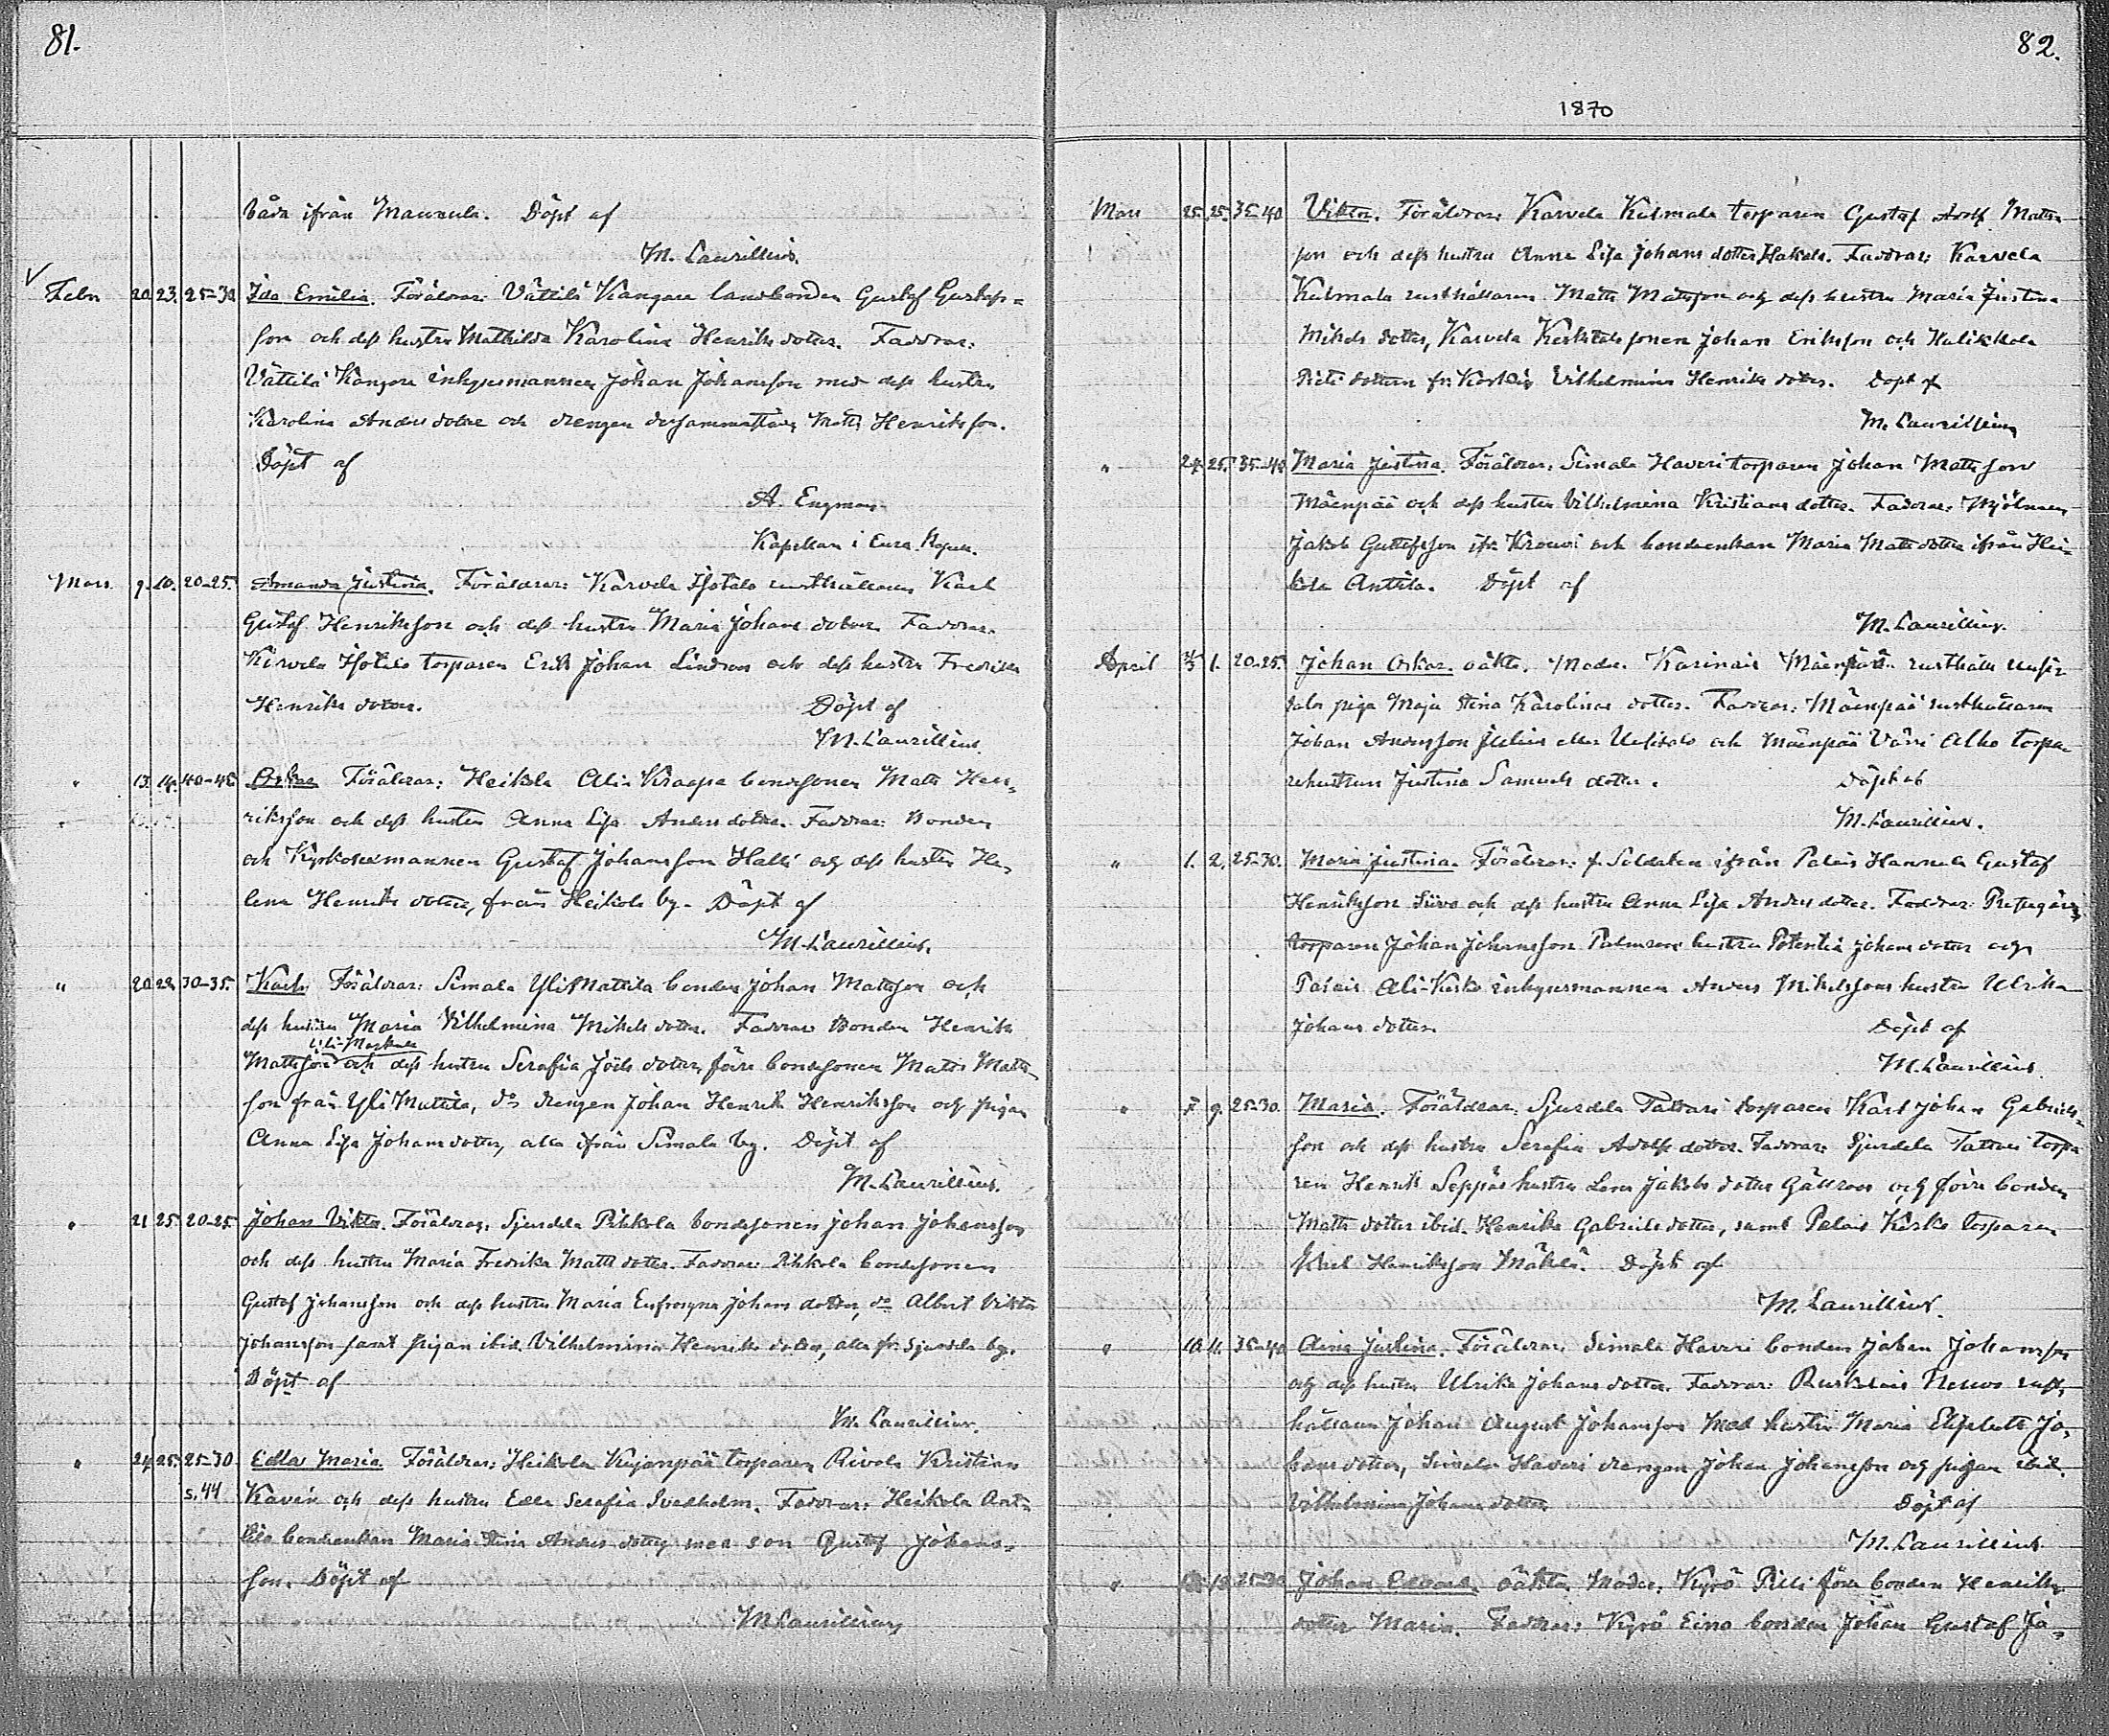 81.
båda ifrån Mannula. Döpt af
M. Laurillius.
Febr 20. 23. 25-30 Ida Emilia. Föräldrar: Vättilä Kangare landbonden Gustaf Gustafs-
son och dess hustru Mathilda Karolina Henriks dotter. Faddrar:
Vättilä Kangare inhysesmannen Johan Johansson med dess hustru
Karolina Anders dotter och drengen dersammastädes Matts Henriksson.
Döpt af
A. Engman
Kapellan i Eura
Mars 9. 10. 20-25. Amanda Justina. Föräldrar: Karvela Isotalo rusthållaren Karl
Gustaf Henriksson och dess hustru Maria Johans dotter. Faddrar:
Karvela Isotalo torparen Erik Johan Lindroos och dess hustru Fredrika
Henriks dotter. Döpt af
M. Laurillius.
" 13. 14. 40-45 Oskar Föräldrar: Heikola Ali-Kraapa bondesonen Matts Hen-
riksson och dess hustru Anna Lisa Anders dotter. Faddrar: Bonden
och Kyrkosexmannen Gustaf Johansson Halli och dess hustru He-
lena Henriks dotter, från Heikola by. Döpt af
M. Laurillius.
" 20. 22. 30-35. Karl. Föräldrar: Simala Yli Mattila bonden Johan Mattsson och
dess hustru Maria Vilhelmina Mikels dotter. Faddrar Bonden Henrik
Mattsson och dess hustru Serafia Joels dotter, förre bondesonen Matts Matts-
son från Yli Mattila, d:o drengen Johan Henrik Henriksson och pigan
Anna Lisa Johans dotter, alla ifrån Simala by. Döpt af
M. Laurillius.
" 21 25. 20-25 Johan Viktor. Föräldrar: Sjurdela Pihkola bondesonen Johan Johansson
och dess hustru Maria Fredrika Matts dotter. Faddrar: Pihkola bondesonen
Gustaf Johansson och dess hustru Maria Eufrosyna Johans dotter, d:o Albert Viktor
Johansson samt pigan ibid. Vilhelmina Henriks dotter, alla fr. Sjurdela by.
Döpt af
M. Laurillius.
" 24. 25. 25-30 Edla Maria. Föräldrar: Heikola Kujanpää torparen Kristian
s. 44 Kavén och dess hustru Edla Serafia Svedholm. Faddrar: Heikola Ant-
tila bondeenkan Maria Stina Anders dotter med son Gustaf Johans-
son. Döpt af
M. Laurillius
82.
1870
Mars 25. 25. 35-40 Viktor. Föräldrar: Karvela Kulmala torparen Gustaf Adolf Matts-
son och dess hustru Anna Lisa Johans dotter Hakala. Faddrar: Karvela
Kulmala rusthållaren Matts Mattsson och dess hustru Maria Justina
Mikels dotter, Karvela Johan Eriksson och
Vilhelmina Henriks dotter. Döpt af
M. Laurillius
" 24. 25. 35-40 Maria Justina. Föräldrar: Simala Haveri torparen Johan Mattsson
Mäenpää och dess hustru Vilhelmina Kristians dotter. Faddrar: Mjölnaren
Jakob Gustafsson ifr. och bondeenkan Maria Matts dotter ifrån Hei-
kola Anttila. Döpt af
M. Laurillius.
April 1. 20-25. Johan Oskar. oäkta. Moder: Karinais Mäenpää rusthåll
piga Maja Stina Karolinas dotter. Faddrar: Mäenpää rusthållaren
Johan Andersson Julin eller och Mäenpää Alho torpa-
rehustrun Justina Samuels dotter. Döpt af
M. Laurillius.
" 1. 2. 25-30. Maria Justina. Föräldrar: f. Soldaten ifrån Palais Hannula Gustaf
Henriksson Siivo och dess hustru Anna Lisa Anders dotter. Faddrar: Prestgårds
torparen Johan Johansson Palmroos hustru Potentia Johans dotter och
Palais Ali-Kesko inhysesmannen Anders Mikelssons hustru Ulrika
Johans dotter. Döpt af
M. Laurillius
" 9. 25-30. Maria. Föräldrar: Sjurdela Tattari torparen Karl Johan Gabriels-
son och dess hustru Serafia Adolfs dotter. Faddrar: Sjurdela Tattari torpa-
ren Henrik Seppäs hustru Lena Jakobs dotter och förre bonden
Matts dotter ibid. Henrika Gabriels dotter, samt Palais Kesko torparen
Henriksson Mäkelä. Döpt af
M. Laurillius.
" 10. 11. 35-40 Aina Justina. Föräldrar: Simala Haveri bonden Johan Johansson
och dess hustru Ulrika Johans dotter. Faddrar: rust-
hållaren Johan August Johansson med hustru Maria Elisabeth Jo-
hans dotter, Simala Haveri drengen Johan Johansson och pigan ibid.
Vilhelmina Johans dotter. Döpt af
M. Laurillius
" 25-30 Johan Edvard. oäkta, Moder: Kyrö Pilli förre bonden Henriks
dotter Maria. Faddrar: Kyrö Eino bonden Johan Gustaf Jo-